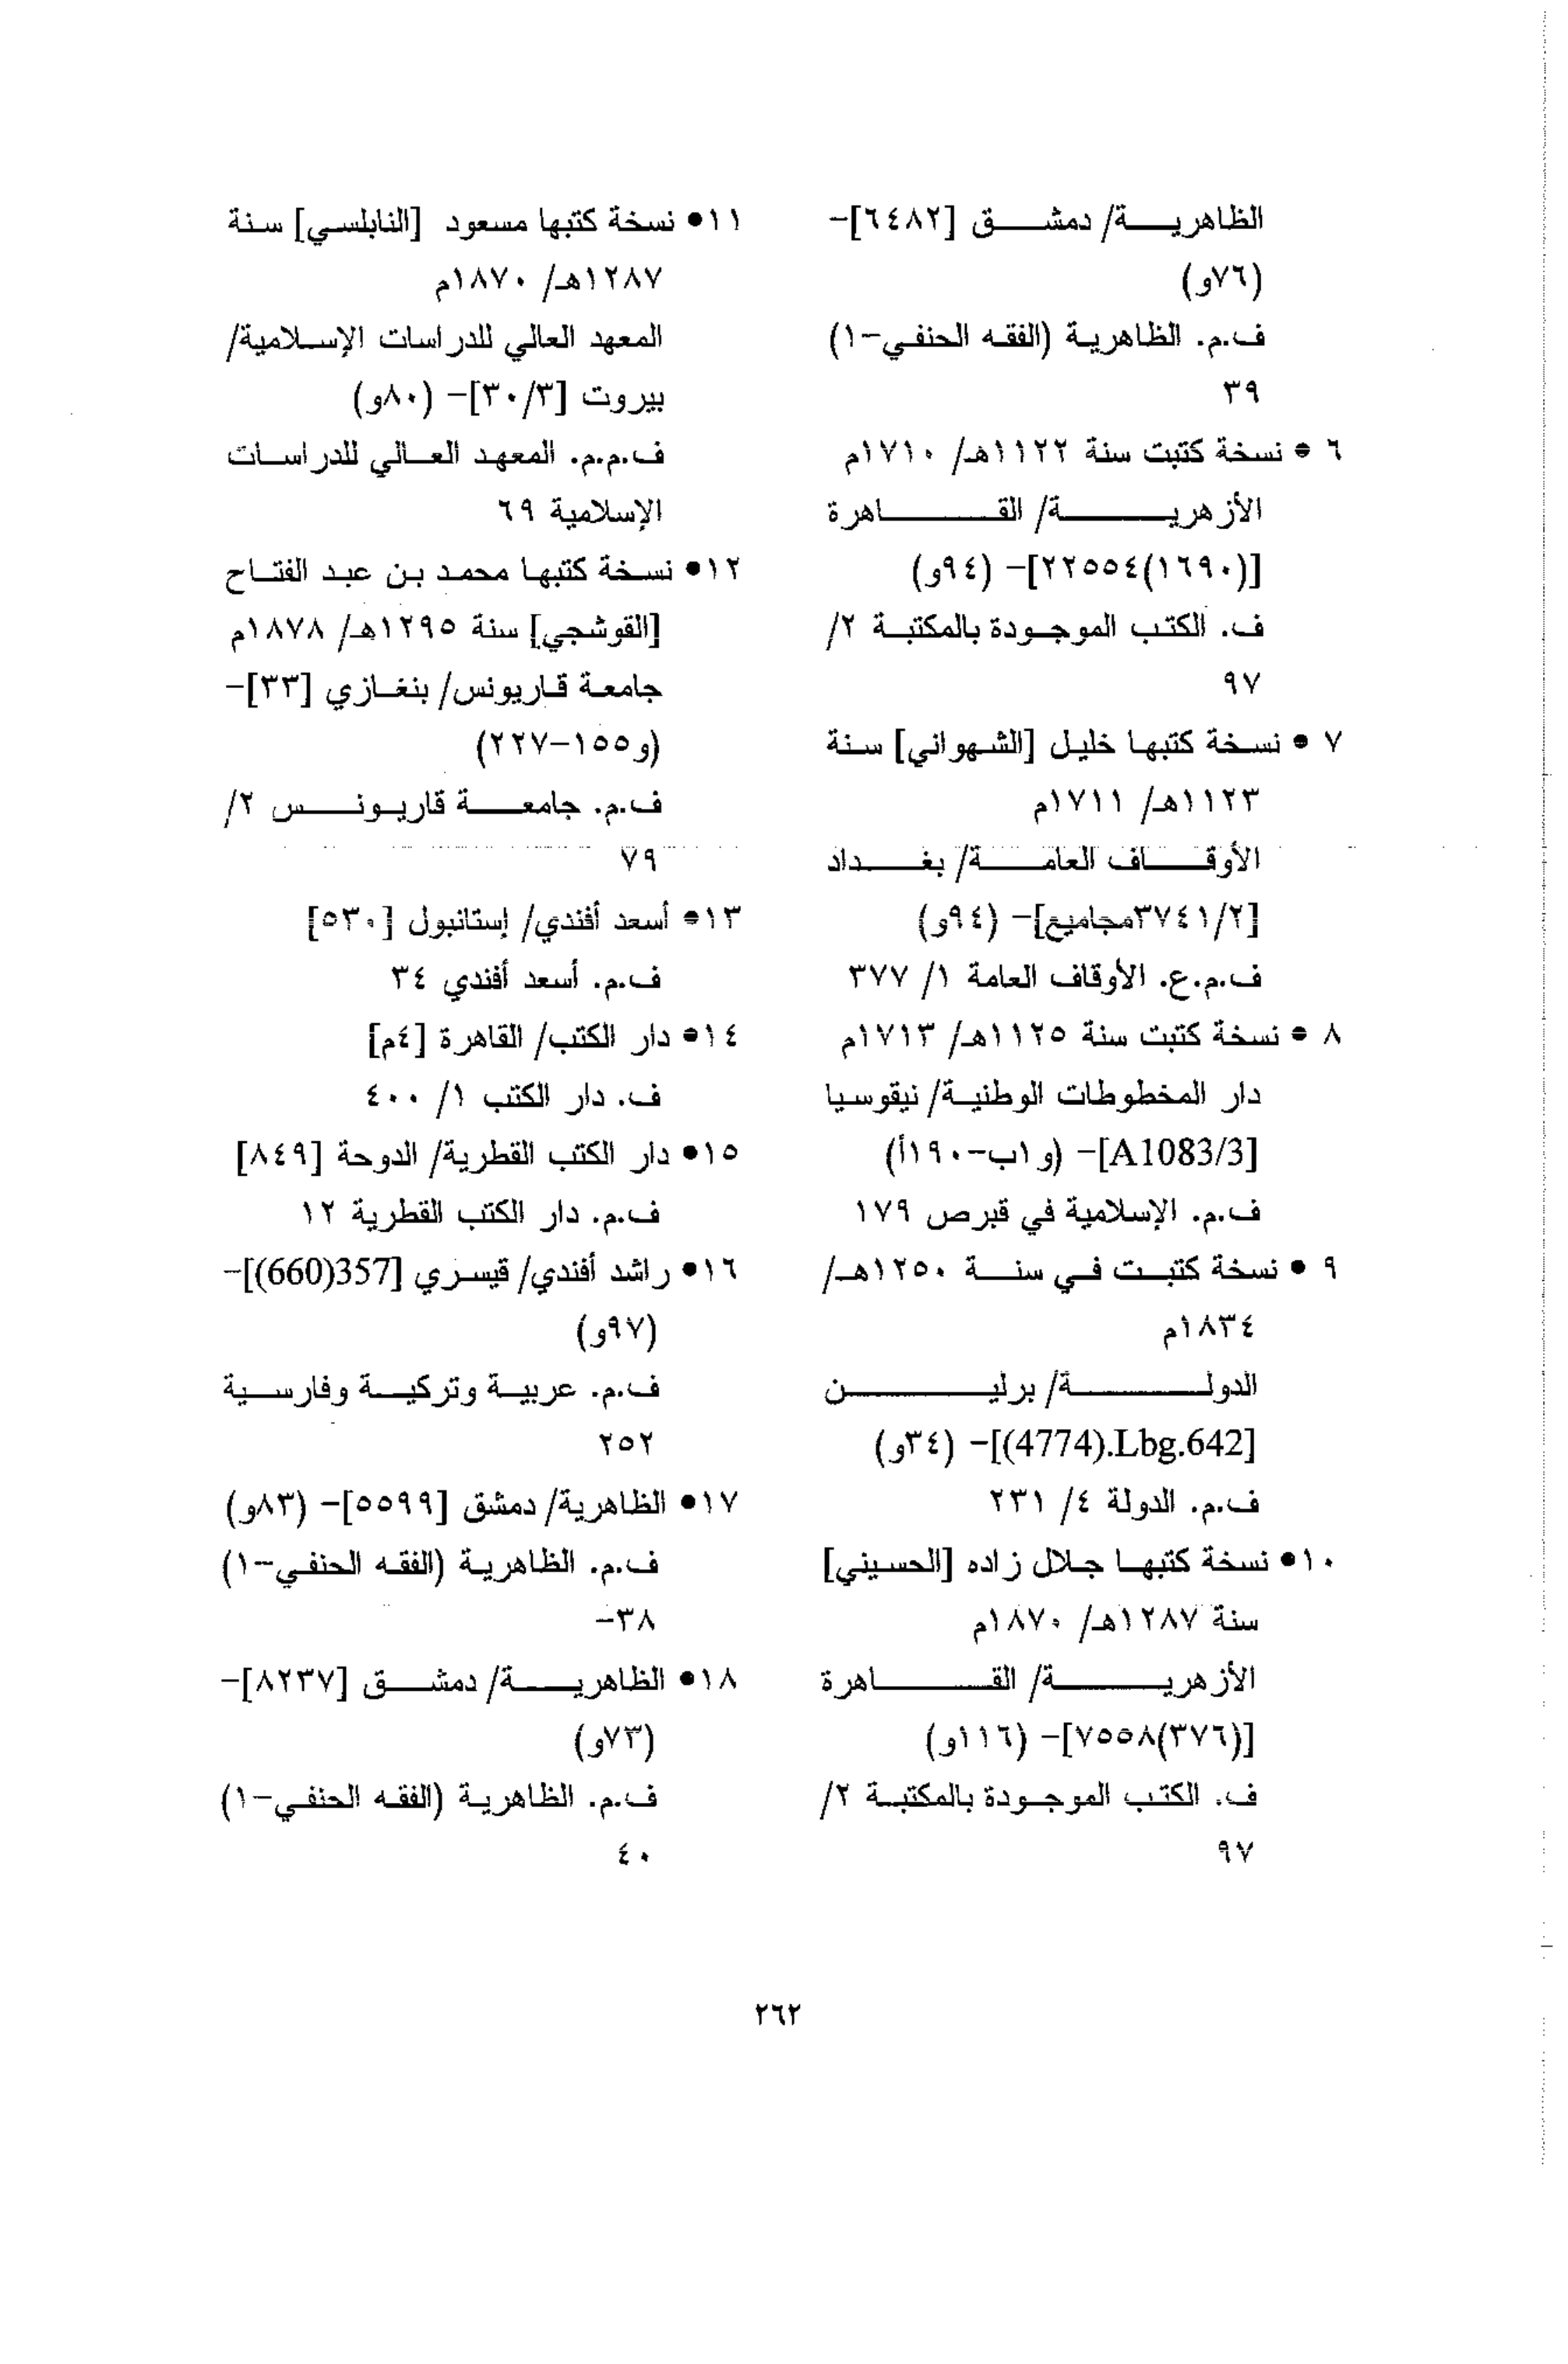 الظاهرية/ دمشق [٦٤٨٢]-
(٧٦و)
ف.م. الظاهرية (الفقه الحنفي-١)
٣٩
٦ • نسخة كتبت سنة ١١٢٢هـ/ ١٧١٠م
الأزهرية/ القاهرة
[(١٦٩٠)٢٢٥٥٤]- (٩٤و)
ف. الكتب الموجودة بالمكتبة ٢/
٩٧
٧ • نسخة كتبها خليل [الشهواني] سنة
١١٢٣هـ/ ١٧١١م
الأوقاف العامة/ بغداد
[٣٧٤١/٢مجاميع]- (٩٤و)
ف.م.ع. الأوقاف العامة ١/ ٣٧٧
٨ • نسخة كتبت سنة ١١٢٥هـ/ ١٧١٣م
دار المخطوطات الوطنية/ نيقوسيا
[A1083/3]- (و١ب-١٩٠أ)
ف.م. الإسلامية في قبرص ١٧٩
٩ • نسخة كتبت في سنة ١٢٥٠هـ/
١٨٣٤م
الدولة/ برلين
[(4774).Lbg.642]- (٣٤و)
ف.م. الدولة ٤/ ٢٣١
١٠• نسخة كتبها جلال زاده [الحسيني]
سنة ١٢٨٧هـ/ ١٨٧٠م
الأزهرية/ القاهرة
[(٣٧٦)٧٥٥٨]- (١١٦و)
ف. الكتب الموجودة بالمكتبة ٢/
٩٧
١١• نسخة كتبها مسعود [النابلسي] سنة
١٢٨٧هـ/ ١٨٧٠م
المعهد العالي للدراسات الإسلامية/
بيروت [٣٠/٣]- (٨٠و)
ف.م.م. المعهد العالي للدراسات
الإسلامية ٦٩
١٢• نسخة كتبها محمد بن عبد الفتاح
[القوشجي] سنة ١٢٩٥هـ/ ١٨٧٨م
جامعة قاريونس/ بنغازي [٣٣]-
(و١٥٥-٢٢٧)
ف.م. جامعة قاريونس ٢/
٧٩
١٣• أسعد أفندي/ إستانبول [٥٣٠]
ف.م. أسعد أفندي ٣٤
١٤• دار الكتب/ القاهرة [٤م]
ف. دار الكتب ١/ ٤٠٠
١٥• دار الكتب القطرية/ الدوحة [٨٤٩]
ف.م. دار الكتب القطرية ١٢
١٦• راشد أفندي/ قيسري [357(660)]-
(٩٧و)
ف.م. عربية وتركية وفارسية
٢٥٢
١٧• الظاهرية/ دمشق [٥٥٩٩]- (٨٣و)
ف.م. الظاهرية (الفقه الحنفي-١)
٣٨-
١٨• الظاهرية/ دمشق [٨٢٣٧]-
(٧٣و)
ف.م. الظاهرية (الفقه الحنفي-١)
٤٠
٢٦٢